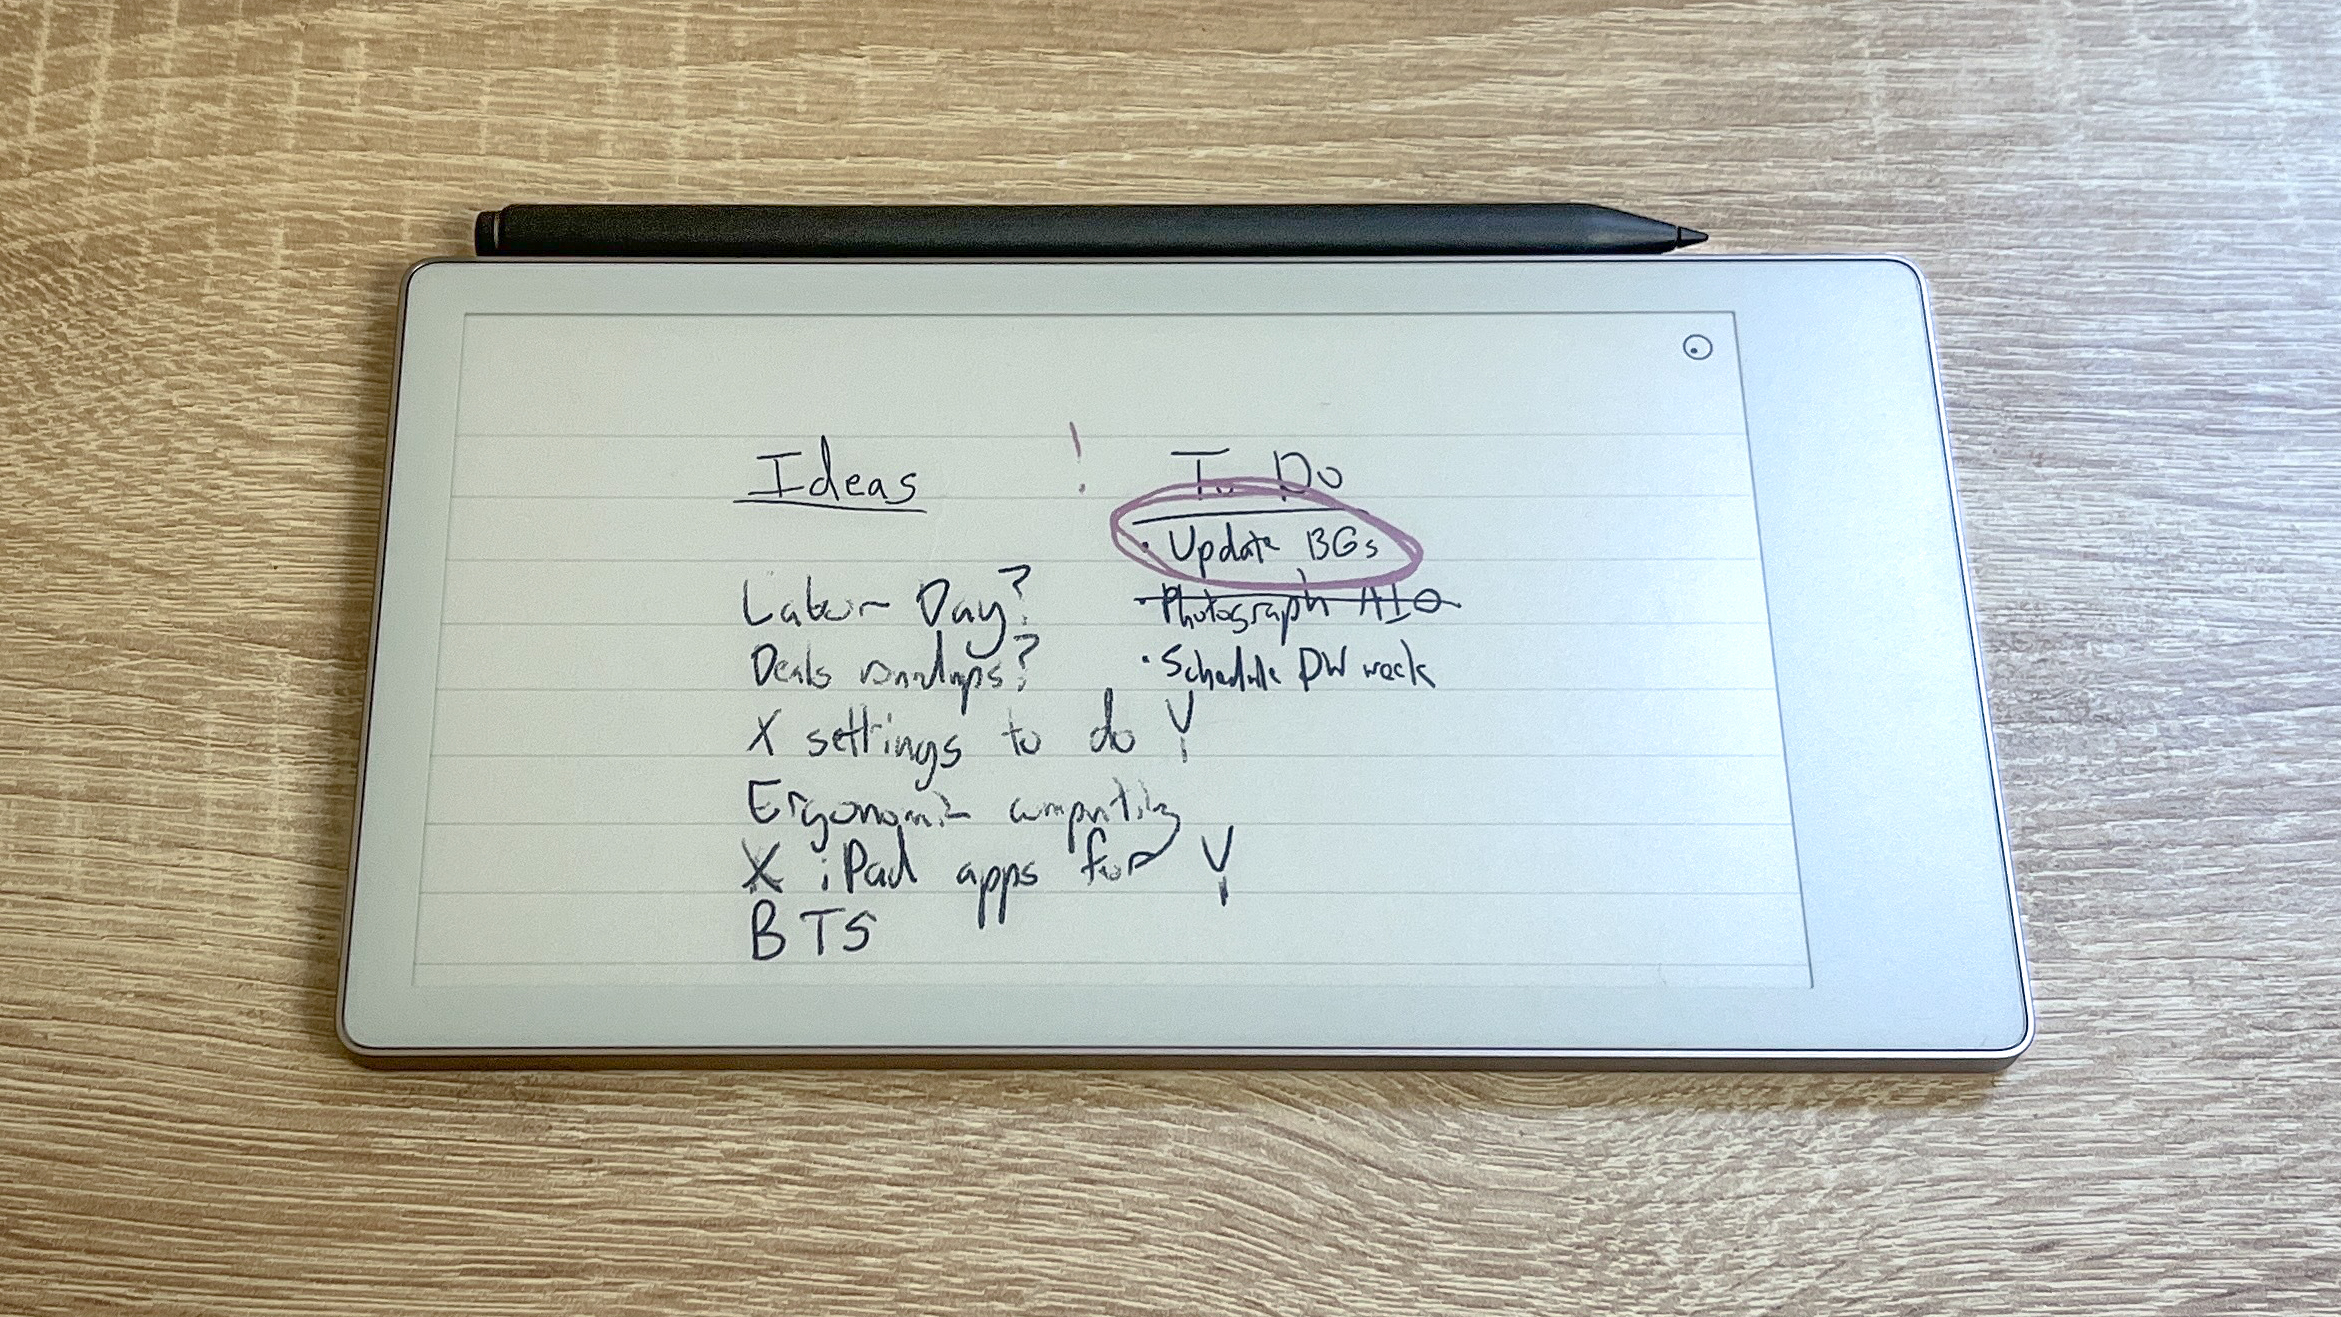 Ideas
Labor Day?
Deals roundups?
X settings to do Y
Ergonomic computing
X iPad apps for Y
BTS
! To Do
· Update BGs
· Photograph AIO
· Schedule DW week